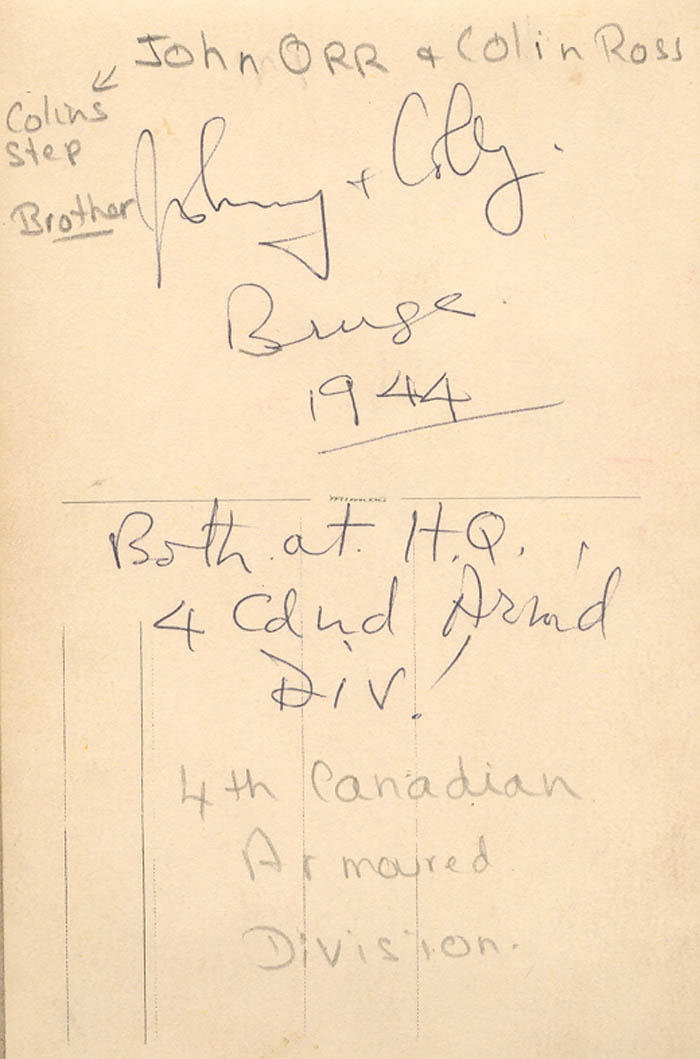 John ORR & Colin Ross
Colins
step
Brother
Johnny + Colly.
Bruge.
1944
Both at H.Q.
4 Cdnd Arm'd
Div.
4th Canadian
Armoured
Division.